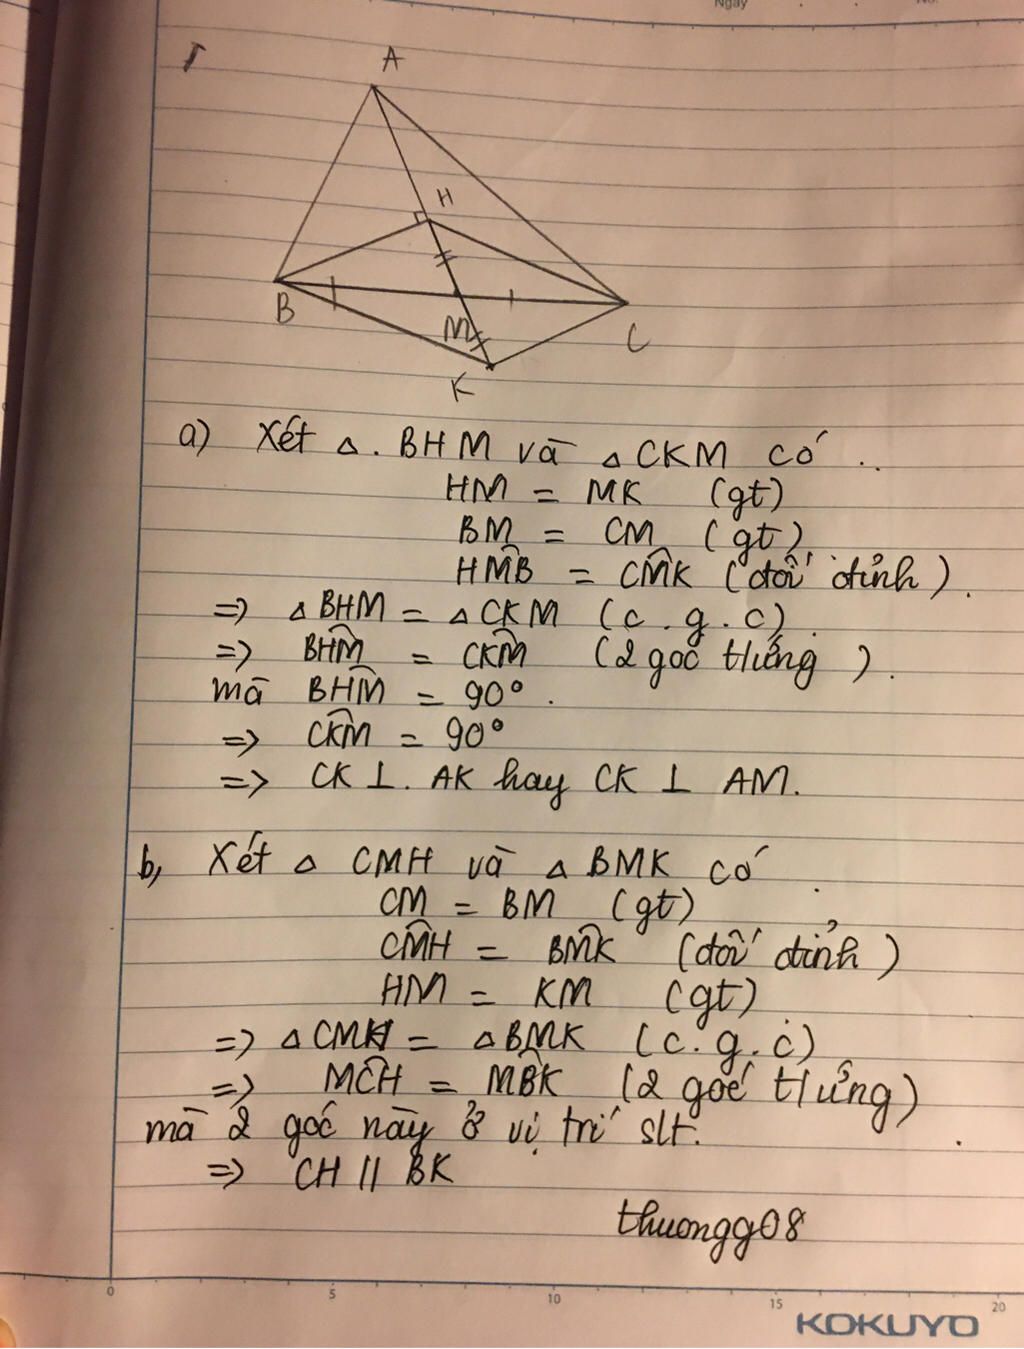 Ngày No.
A
H
B
M
C
K
a) Xét △. BHM và △ CKM có ..
HM = MK (gt)
BM = CM (gt)
HM̂B = CM̂K (đối đỉnh).
=> △ BHM = △ CKM (c.g.c).
=> BĤM = CK̂M (2 góc t/ứng).
mà BĤM = 90°.
=> CK̂M = 90°
=> CK ⊥. AK hay CK ⊥ AM.
b, Xét △ CMH và △ BMK có
CM = BM (gt)
CM̂H = BM̂K (đối đỉnh)
HM = KM (gt)
=> △ CMH = △ BMK (c.g.c)
=> MĈH = MB̂K (2 góc t/ứng)
mà 2 góc này ở vị trí slt.
=> CH // BK
thuongg08
0 5 10 15 20
KOKUYO